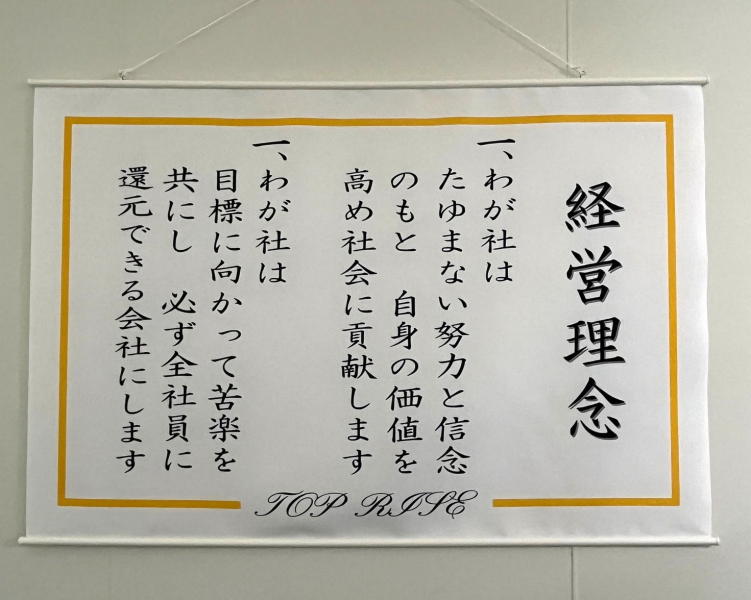 経営理念
一、わが社は
たゆまない努力と信念
のもと　自身の価値を
高め社会に貢献します
一、わが社は
目標に向かって苦楽を
共にし　必ず全社員に
還元できる会社にします
TOP RISE